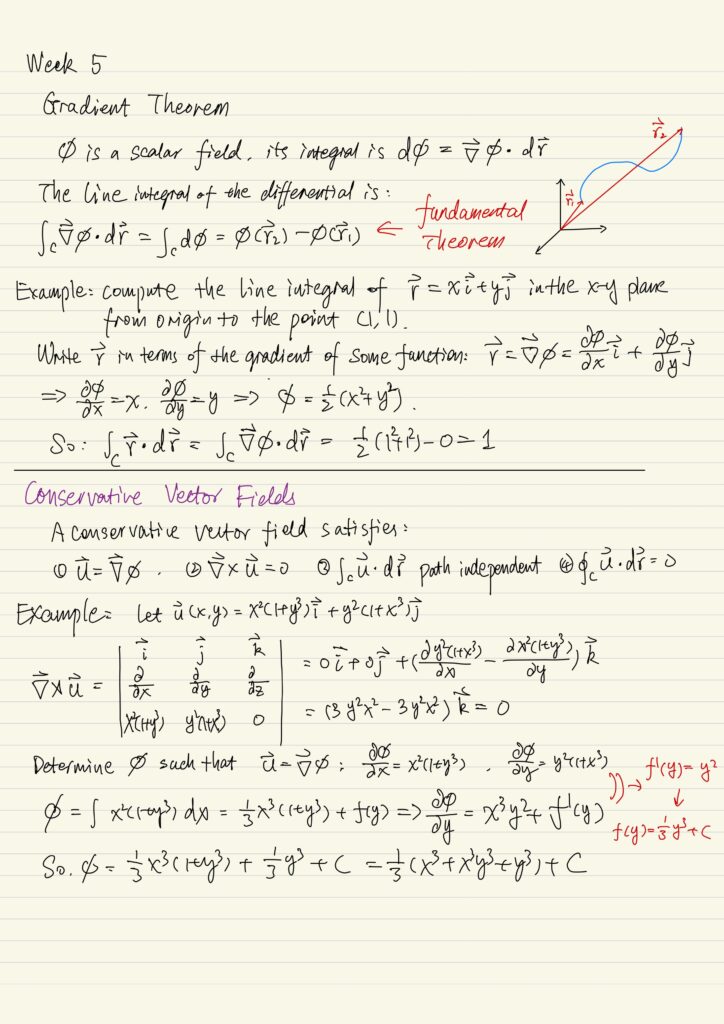 Week 5
Gradient Theorem
∅ is a scalar field, its integral is d∅ = ∇⃗∅·dr⃗
r⃗₂
r⃗₁
The line integral of the differential is:
∫_C ∇⃗∅·dr⃗ = ∫_C d∅ = ∅(r⃗₂) − ∅(r⃗₁) ← fundamental Theorem
Example: compute the line integral of r⃗ = xi⃗ + yj⃗ in the x-y plane
from origin to the point (1,1).
Write r⃗ in terms of the gradient of some function: r⃗ = ∇⃗∅ = ∂∅/∂x i⃗ + ∂∅/∂y j⃗
⇒ ∂∅/∂x = x. ∂∅/∂y = y ⇒ ∅ = 1/2 (x²+y²).
So: ∫_C r⃗·dr⃗ = ∫_C ∇⃗∅·dr⃗ = 1/2 (1²+1²) − 0 = 1
Conservative Vector Fields
A conservative vector field satisfies:
① u⃗ = ∇⃗∅. ② ∇⃗×u⃗ = 0 ③ ∫_C u⃗·dr⃗ path independent ④ ∮_C u⃗·dr⃗ = 0
Example: Let u⃗(x,y) = x²(1+y³)i⃗ + y²(1+x³)j⃗
∇⃗×u⃗ = | i⃗ j⃗ k⃗ | = 0i⃗ + 0j⃗ + (∂y²(1+x³)/∂x − ∂x²(1+y³)/∂y) k⃗
| ∂/∂x ∂/∂y ∂/∂z |
| x²(1+y³) y²(1+x³) 0 | = (3y²x² − 3y²x²) k⃗ = 0
Determine ∅ such that u⃗ = ∇⃗∅: ∂∅/∂x = x²(1+y³). ∂∅/∂y = y²(1+x³)
∅ = ∫ x²(1+y³) dx = 1/3 x³(1+y³) + f(y) ⇒ ∂∅/∂y = x³y² + f'(y)
→ f'(y) = y²
↓
f(y) = 1/3 y³ + C
So. ∅ = 1/3 x³(1+y³) + 1/3 y³ + C = 1/3 (x³+x³y³+y³) + C